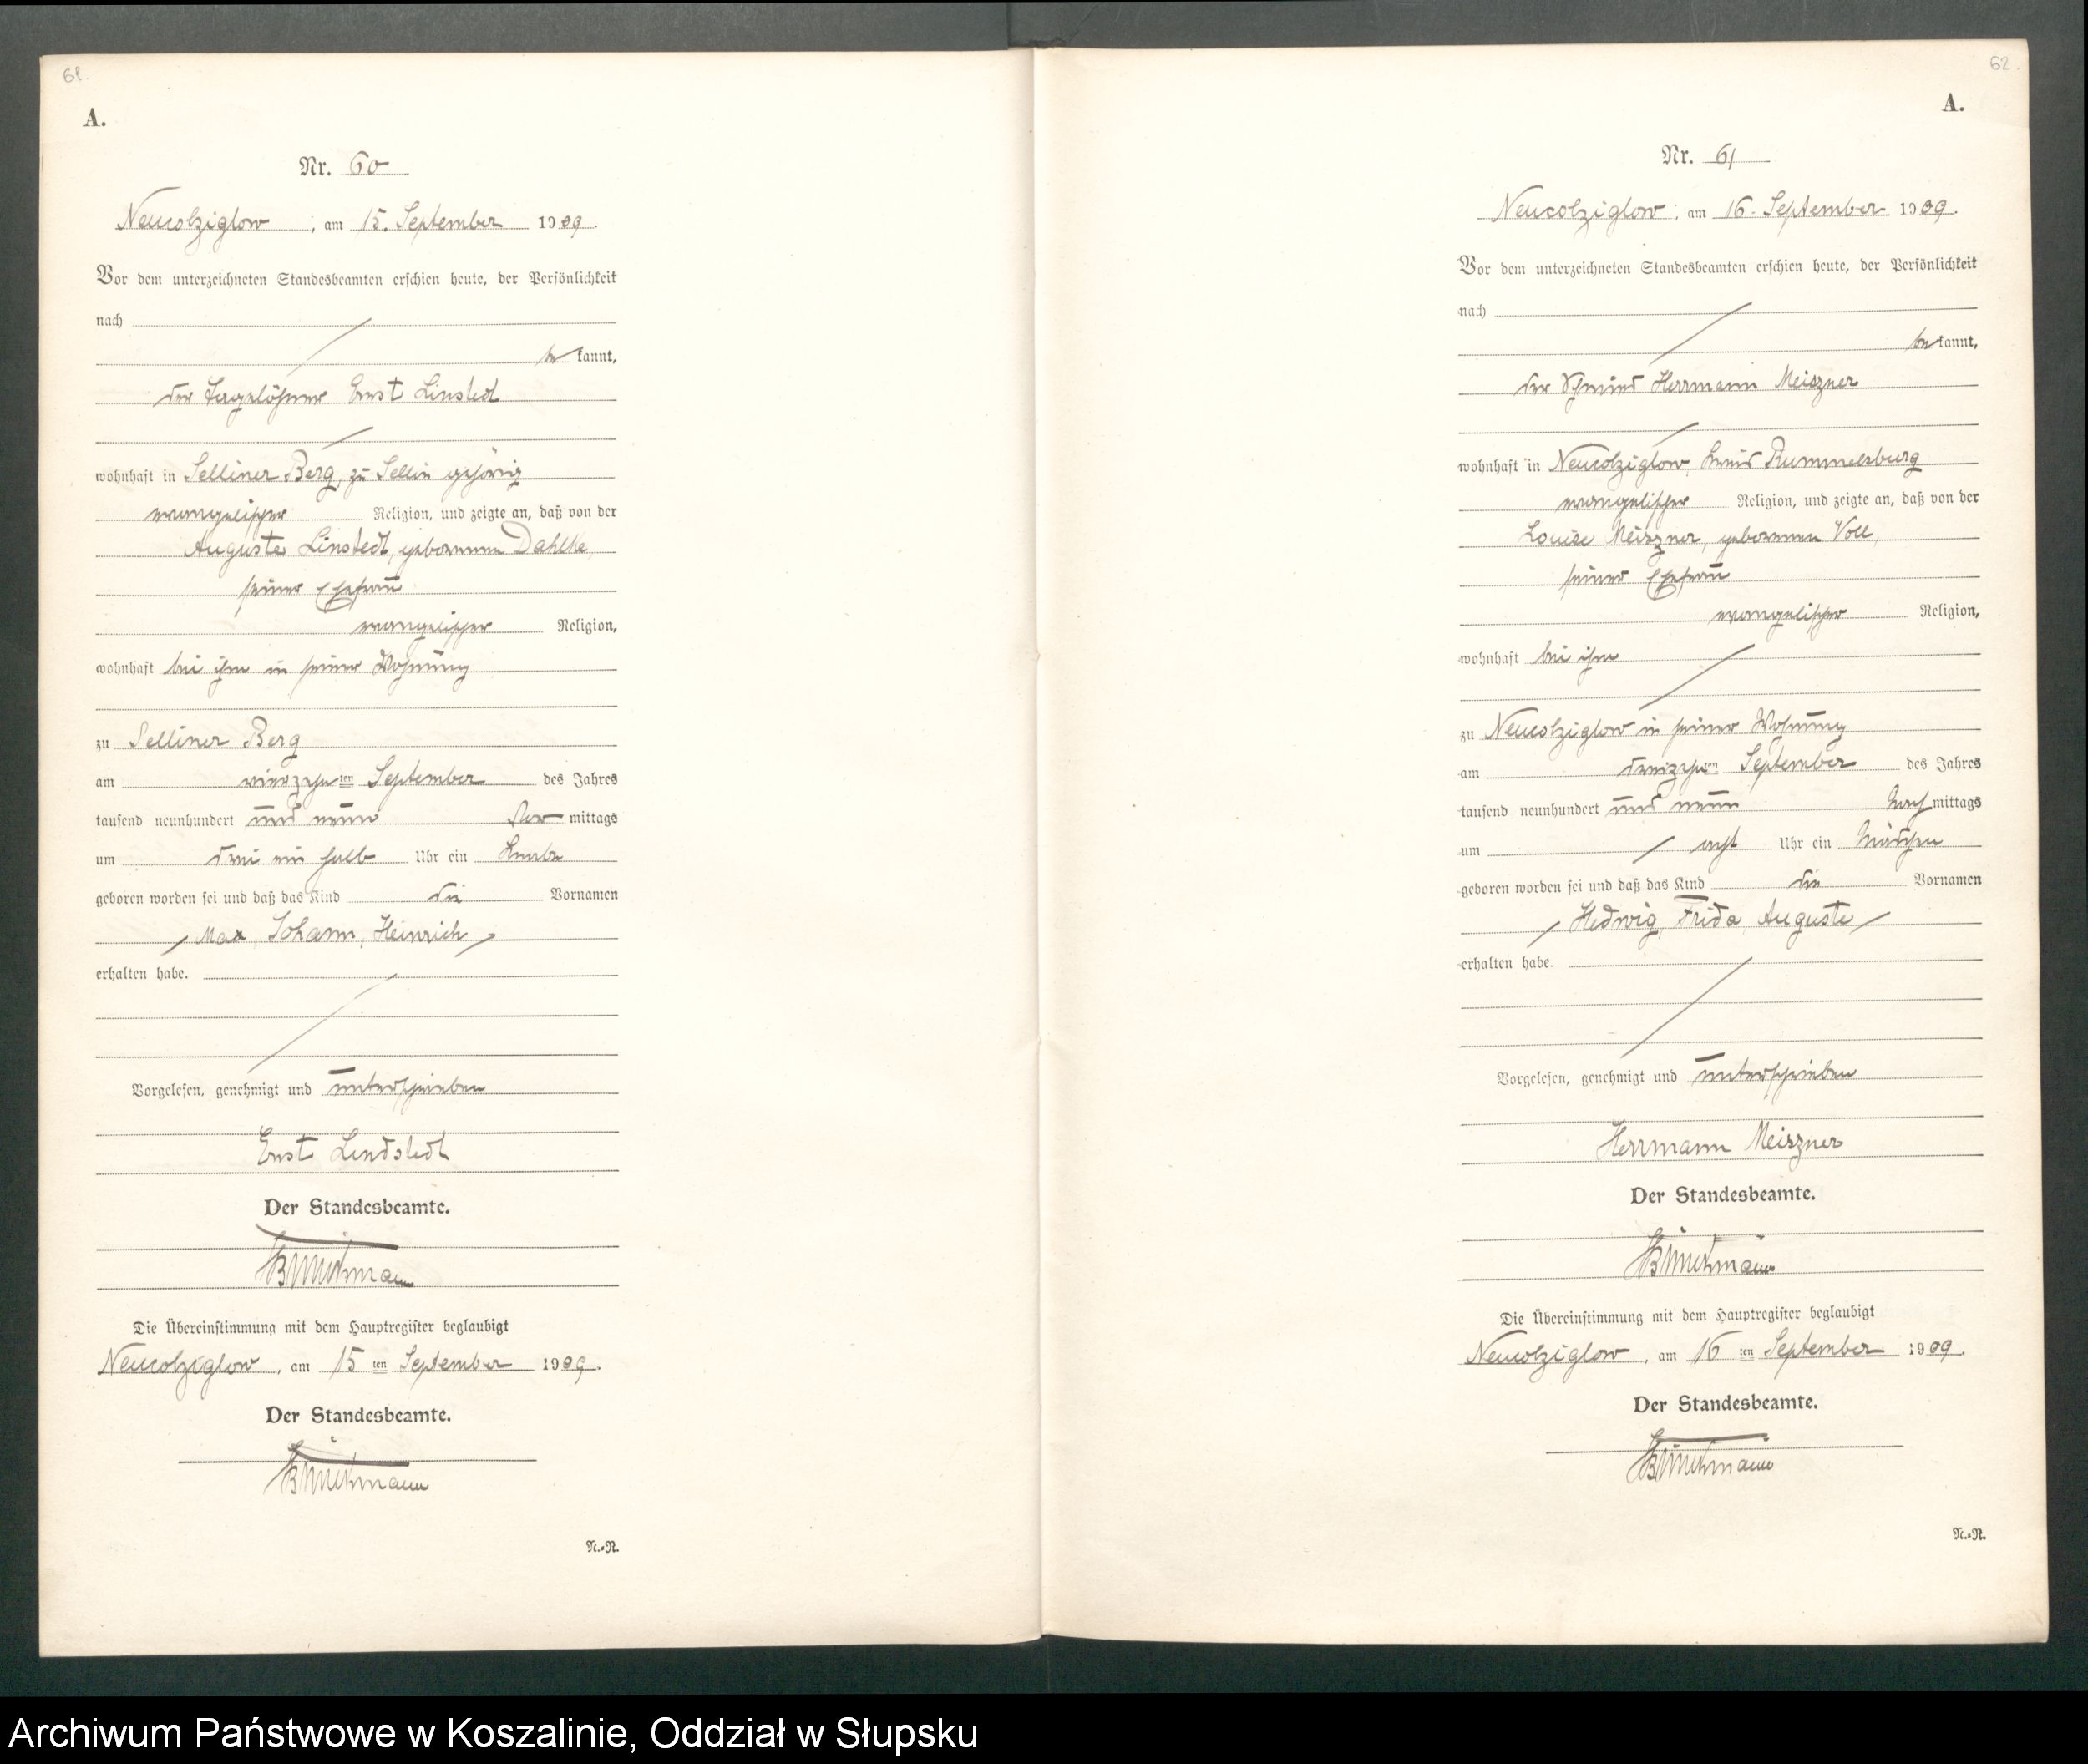 61.
A.
Nr. 60
Neucolziglow, am 15. September 1909.
Vor dem unterzeichneten Standesbeamten erschien heute, der Persönlichkeit
nach
be kannt,
der Tagelöhner Ernst Linstedt
wohnhaft in Selliner Berg, zu Sellin gehörig
evangelischer Religion, und zeigte an, daß von der
Auguste Linstedt, geborenen Dahlke,
seiner Ehefrau
evangelischer Religion,
wohnhaft bei ihm in seiner Wohnung
zu Selliner Berg
am vierzehnten September des Jahres
tausend neunhundert und neun Vor mittags
um drei ein halb Uhr ein Knabe
geboren worden sei und daß das Kind die Vornamen
Max, Johann, Heinrich
erhalten habe.
Vorgelesen, genehmigt und unterschrieben
Ernst Lindstedt
Der Standesbeamte.
Die Übereinstimmung mit dem Hauptregister beglaubigt
Neucolziglow, am 15 ten September 1909.
Der Standesbeamte.
N.=N.
62.
A.
Nr. 61
Neucolziglow, am 16. September 1909.
Vor dem unterzeichneten Standesbeamten erschien heute, der Persönlichkeit
nach
be kannt,
der Schmied Herrmann Meiszner
wohnhaft in Neucolziglow, Kreis Rummelsburg
evangelischer Religion, und zeigte an, daß von der
Louise Meiszner, geborenen Voll,
seiner Ehefrau
evangelischer Religion,
wohnhaft bei ihm
zu Neucolziglow in seiner Wohnung
am dreizehnten September des Jahres
tausend neunhundert und neun Nach mittags
um acht Uhr ein Mädchen
geboren worden sei und daß das Kind die Vornamen
Hedwig, Frida, Auguste
erhalten habe.
Vorgelesen, genehmigt und unterschrieben
Herrmann Meiszner
Der Standesbeamte.
Die Übereinstimmung mit dem Hauptregister beglaubigt
Neucolziglow, am 16 ten September 1909.
Der Standesbeamte.
N.=N.
Archiwum Państwowe w Koszalinie, Oddział w Słupsku